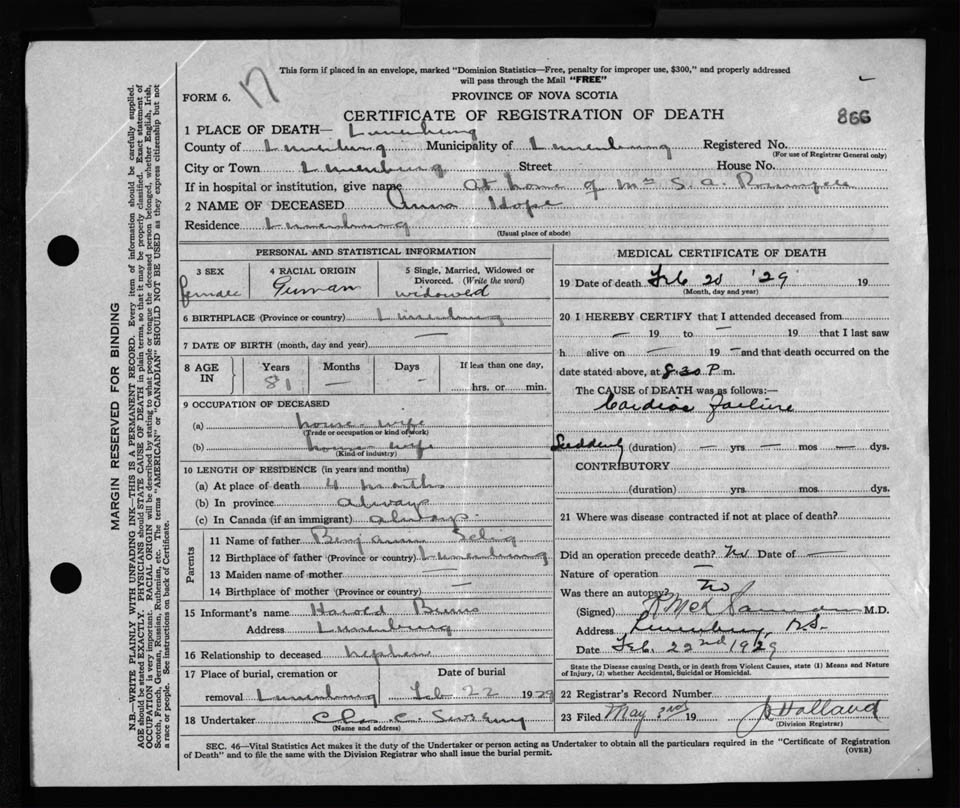 This form if placed in an envelope, marked "Dominion Statistics—Free, penalty for improper use, $300," and properly addressed
will pass through the Mail "FREE"
FORM 6.
17
PROVINCE OF NOVA SCOTIA
CERTIFICATE OF REGISTRATION OF DEATH
866
1 PLACE OF DEATH— Lunenburg
County of Lunenburg Municipality of Lunenburg Registered No.
(For use of Registrar General only)
City or Town Lunenburg Street House No.
If in hospital or institution, give name At home of Mrs S. A.
2 NAME OF DECEASED Anna Hope
Residence Lunenburg
(Usual place of abode)
PERSONAL AND STATISTICAL INFORMATION
3 SEX female
4 RACIAL ORIGIN German
5 Single, Married, Widowed or Divorced. (Write the word) widowed
6 BIRTHPLACE (Province or country) Lunenburg
7 DATE OF BIRTH (month, day and year) —
8 AGE IN Years Months Days If less than one day,
81 — — hrs. or min.
9 OCCUPATION OF DECEASED
(a) house-wife
(Trade or occupation or kind of work)
(b) house-wife
(Kind of industry)
10 LENGTH OF RESIDENCE (in years and months)
(a) At place of death 4 months
(b) In province always
(c) In Canada (if an immigrant) always
Parents
11 Name of father Benjamin Selig
12 Birthplace of father (Province or country) Lunenburg
13 Maiden name of mother —
14 Birthplace of mother (Province or country) —
15 Informant's name Harold
Address Lunenburg
16 Relationship to deceased nephew
17 Place of burial, cremation or removal Lunenburg
Date of burial Feb 22 1929
18 Undertaker Chas C. Sweeny
(Name and address)
MEDICAL CERTIFICATE OF DEATH
19 Date of death Feb 20 '29 19
(Month, day and year)
20 I HEREBY CERTIFY that I attended deceased from
— 19 to — 19 that I last saw
h alive on — 19 — and that death occurred on the
date stated above, at 8.30 P.m.
The CAUSE of DEATH was as follows:—
Cardiac failure
Suddenly (duration) — yrs — mos dys.
CONTRIBUTORY
(duration) yrs. mos. dys.
21 Where was disease contracted if not at place of death?
Did an operation precede death? No Date of —
Nature of operation —
Was there an autopsy? No
(Signed) M.D.
Address Lunenburg, N.S.
Date Feb. 22nd 1929
State the Disease causing Death, or in death from Violent Causes, state (1) Means and Nature
of Injury, (2) whether Accidental, Suicidal or Homicidal.
22 Registrar's Record Number
23 Filed May 2nd 19 J Holland
(Division Registrar)
SEC. 46—Vital Statistics Act makes it the duty of the Undertaker or person acting as Undertaker to obtain all the particulars required in the "Certificate of Registration
of Death" and to file the same with the Division Registrar who shall issue the burial permit.
(OVER)
MARGIN RESERVED FOR BINDING
N.B.—WRITE PLAINLY WITH UNFADING INK—THIS IS A PERMANENT RECORD. Every item of information should be carefully supplied.
AGE should be stated EXACTLY. PHYSICIANS should STATE CAUSE OF DEATH in plain terms, so that it may be properly classified. Exact statement of
OCCUPATION is very important. RACIAL ORIGIN will be described by stating to what people or tongue the deceased person belonged, whether English, Irish,
Scotch, French, German, Russian, Ruthenian, etc. The terms "AMERICAN" or "CANADIAN" SHOULD NOT BE USED as they express citizenship but not
a race or people. See instructions on back of Certificate.